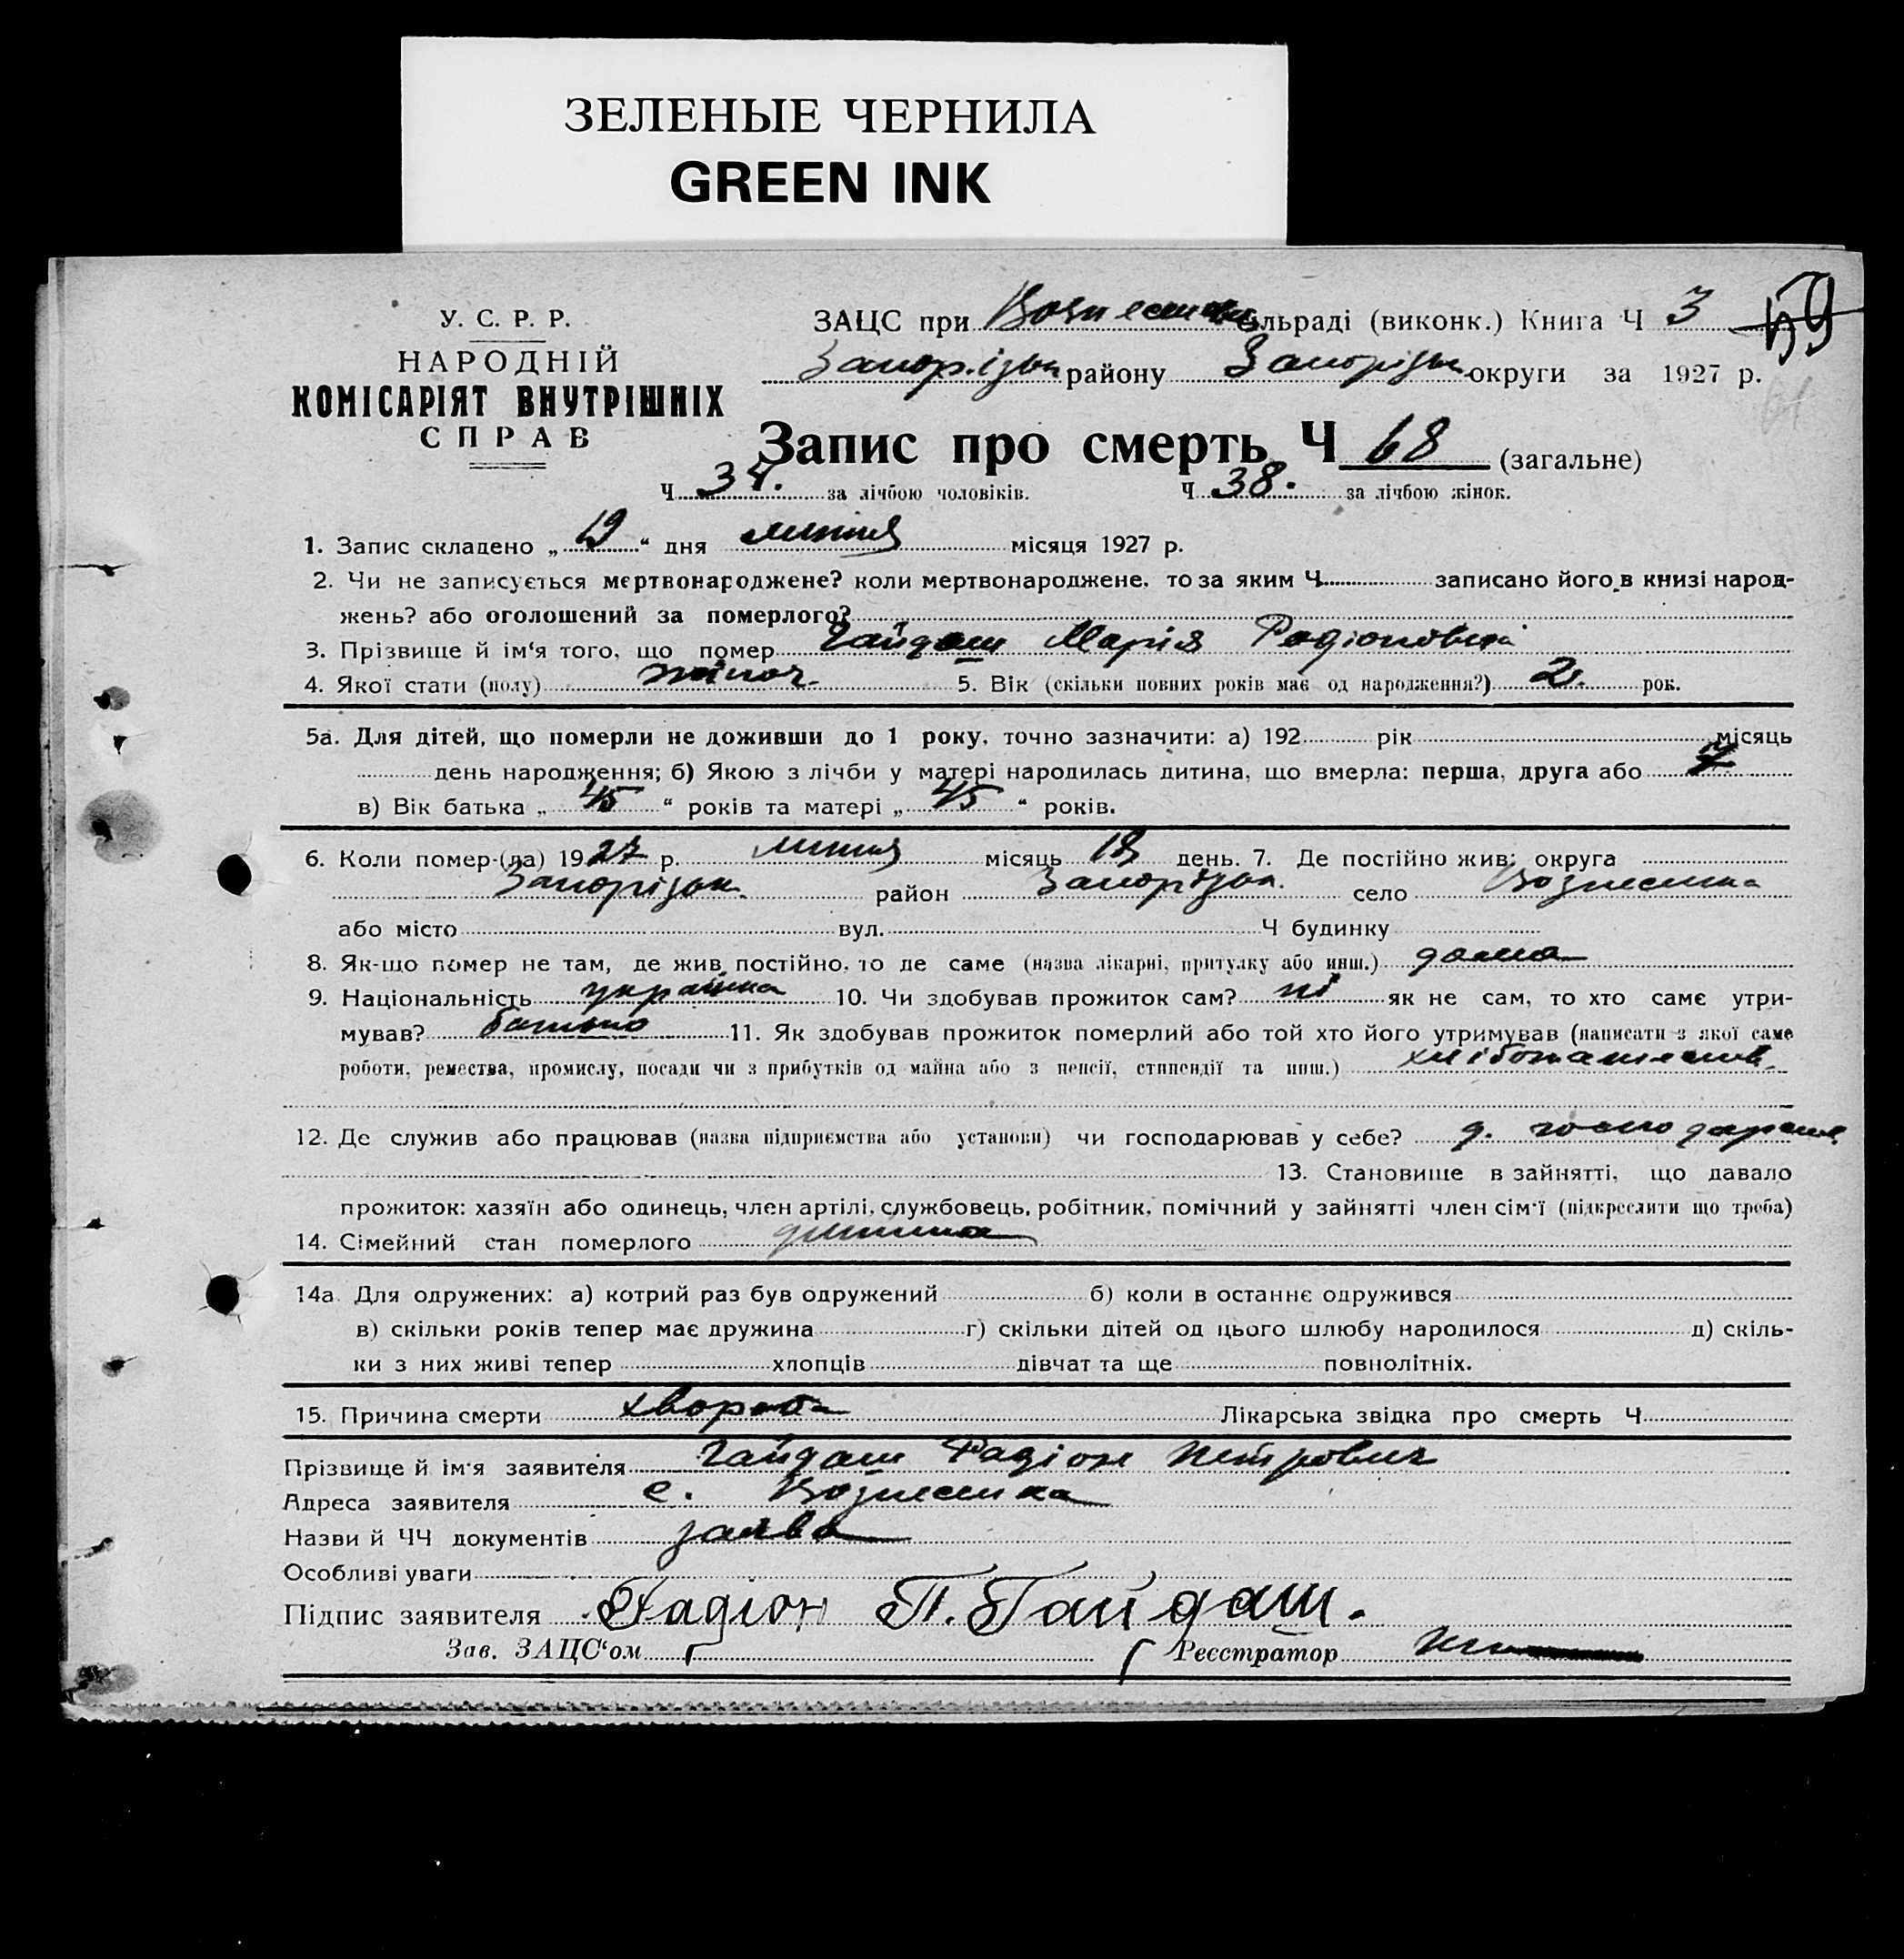 ЗЕЛЕНЫЕ ЧЕРНИЛА
GREEN INK
У. С. Р. Р.
НАРОДНІЙ
КОМІСАРІЯТ ВНУТРІШНІХ
СПРАВ
ЗАЦС при Вознесенськ сільраді (виконк.) Книга Ч 3 59
Запорізьк району Запорізьк округи за 1927 р.
Запис про смерть Ч 68 (загальне)
Ч за лічбою чоловіків. Ч 38. за лічбою жінок.
1. Запис складено „ 19 “ дня липня місяця 1927 р.
2. Чи не записується мертвонароджене? коли мертвонароджене, то за яким Ч записано його в книзі народ-
жень? або оголошений за померлого?
3. Прізвище й ім'я того, що помер Гайдаш Марія Родіоновна
4. Якої стати (полу) жіноч. 5. Вік (скільки повних років має од народження?) 2. рок.
5а. Для дітей, що померли не доживши до 1 року, точно зазначити: а) 192 рік місяць
день народження; б) Якою з лічби у матері народилась дитина, що вмерла: перша, друга або 7
в) Вік батька „ 45 “ років та матері „ 45 “ років.
6. Коли помер-(ла) 1927 р. липня місяць 18 день. 7. Де постійно жив: округа
Запорізьк. район Запорізьк. село Вознесенка
або місто вул. Ч будинку
8. Як-що помер не там, де жив постійно, то де саме (назва лікарні, притулку або инш.) дома
9. Національність українка 10. Чи здобував прожиток сам? ні як не сам, то хто саме утри-
мував? батько 11. Як здобував прожиток померлий або той хто його утримував (написати з якої саме
роботи, ремества, промислу, посади чи з прибутків од майна або з пенсії, стипендії та инш.) хлібопашеств.
12. Де служив або працював (назва підприємства або установи) чи господарював у себе? госпо
13. Становище в зайнятті, що давало
прожиток: хазяїн або одинець, член артілі, службовець, робітник, помічний у зайнятті член сім'ї (підкреслити що треба)
14. Сімейний стан померлого дитина
14а. Для одружених: а) котрий раз був одружений б) коли в останнє одружився
в) скільки років тепер має дружина г) скільки дітей од цього шлюбу народилося д) скіль-
ки з них живі тепер хлопців дівчат та ще повнолітніх.
15. Причина смерти хвороба Лікарська звідка про смерть Ч
Прізвище й ім'я заявителя Гайдаш Радіон Петрович
Адреса заявителя с. Вознесенка
Назви й ЧЧ документів заява
Особливі уваги
Підпис заявителя Радіон П. Гайдаш.
Зав. ЗАЦС'ом Реєстратор